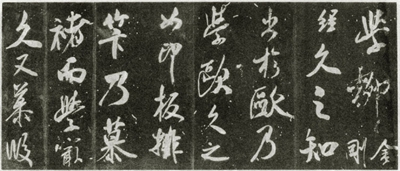 學柳金剛
經久之知
出於歐乃
學歐久之
如印板排
笇乃慕
褚而學最
久又慕段